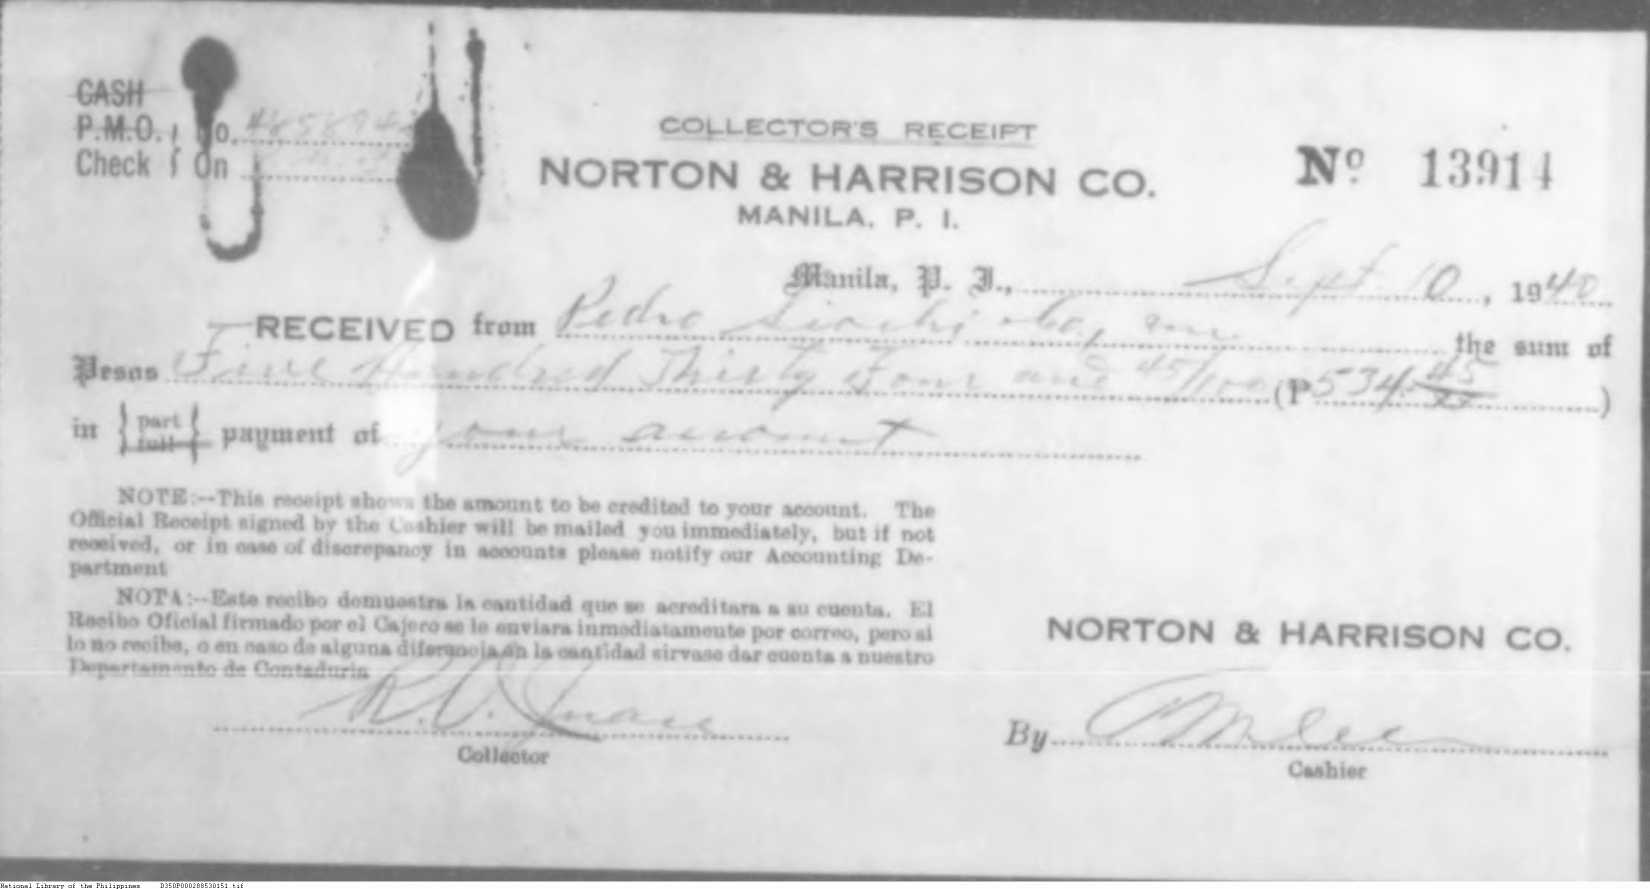 CASH
P.M.O. No.
Check On
COLLECTOR'S RECEIPT
NORTON & HARRISON CO.
MANILA, P. I.
Nº 13914
Manila, P. I., Sept. 10, 1940
RECEIVED from Pedro the sum of
Pesos Five Hundred Thirty Four and 45/100 (P 534.45)
in } part full { payment of your account
NOTE:--This receipt shows the amount to be credited to your account. The
Official Receipt signed by the Cashier will be mailed you immediately, but if not
received, or in case of discrepancy in accounts please notify our Accounting De-
partment
NOTA:--Este recibo demuestra la cantidad que se acreditara a su cuenta. El
Recibo Oficial firmado por el Cajero se le enviara inmediatamente por correo, pero si
lo no recibe, o en caso de alguna diferencia en la cantidad sirvase dar cuenta a nuestro
Departamento de Contaduria
NORTON & HARRISON CO.
By
Collector
Cashier
National Library of the Philippines D350P000288530151.tif